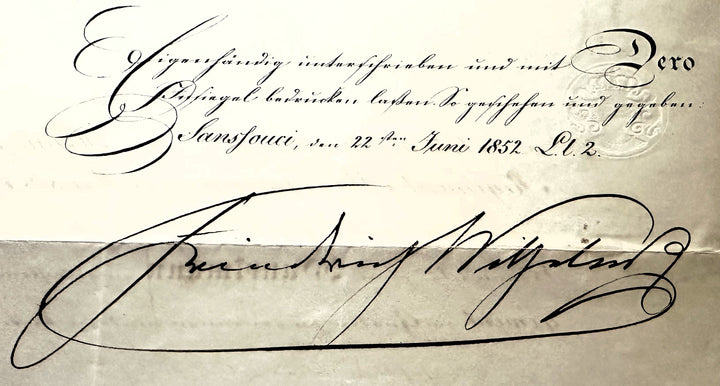 Eigenhändig unterschrieben und mit Dero
Insiegel bedrucken laßen. So geschehen und gegeben:
Sanssouci, den 22sten Juni 1852. L.t.2.
Friedrich Wilhelm